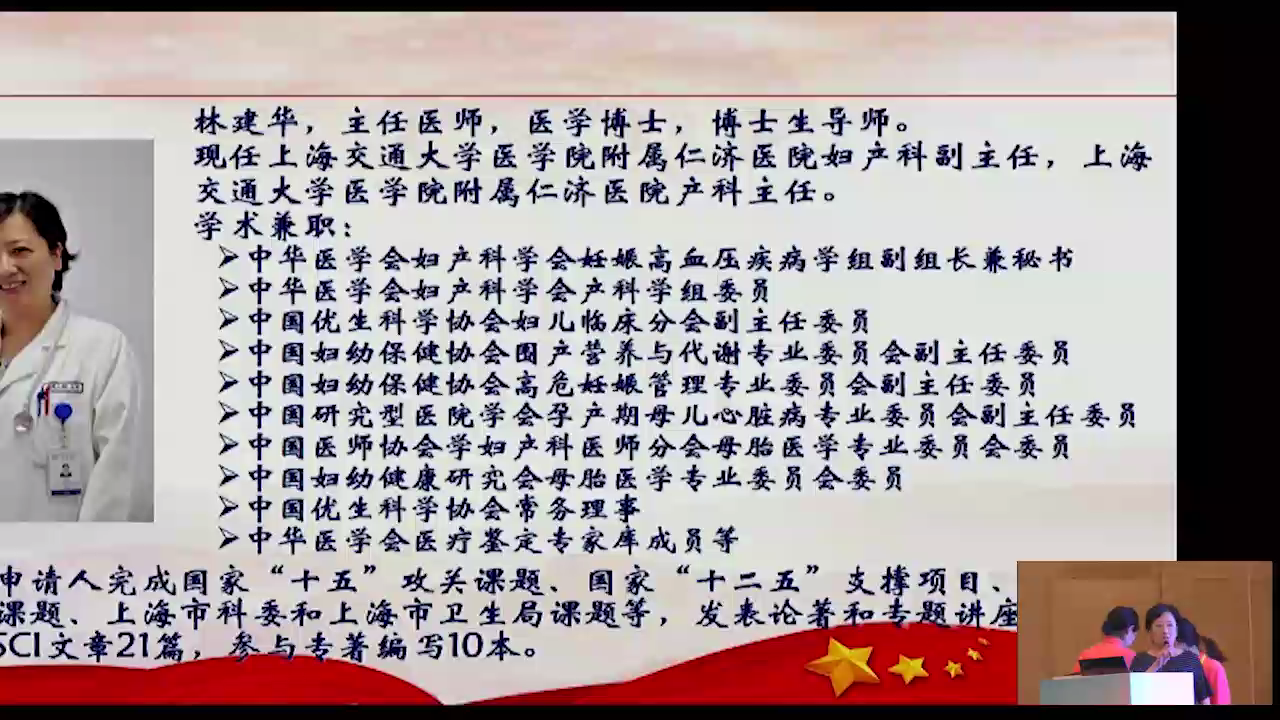 林建华，主任医师，医学博士，博士生导师。
现任上海交通大学医学院附属仁济医院妇产科副主任，上海
交通大学医学院附属仁济医院产科主任。
学术兼职：
➢中华医学会妇产科学会妊娠高血压疾病学组副组长兼秘书
➢中华医学会妇产科学会产科学组委员
➢中国优生科学协会妇儿临床分会副主任委员
➢中国妇幼保健协会围产营养与代谢专业委员会副主任委员
➢中国妇幼保健协会高危妊娠管理专业委员会副主任委员
➢中国研究型医院学会孕产期母儿心脏病专业委员会副主任委员
➢中国医师协会学妇产科医师分会母胎医学专业委员会委员
➢中国妇幼健康研究会母胎医学专业委员会委员
➢中国优生科学协会常务理事
➢中华医学会医疗鉴定专家库成员等
申请人完成国家“十五”攻关课题、国家“十二五”支撑项目、
课题、上海市科委和上海市卫生局课题等，发表论著和专题讲座
SCI文章21篇，参与专著编写10本。